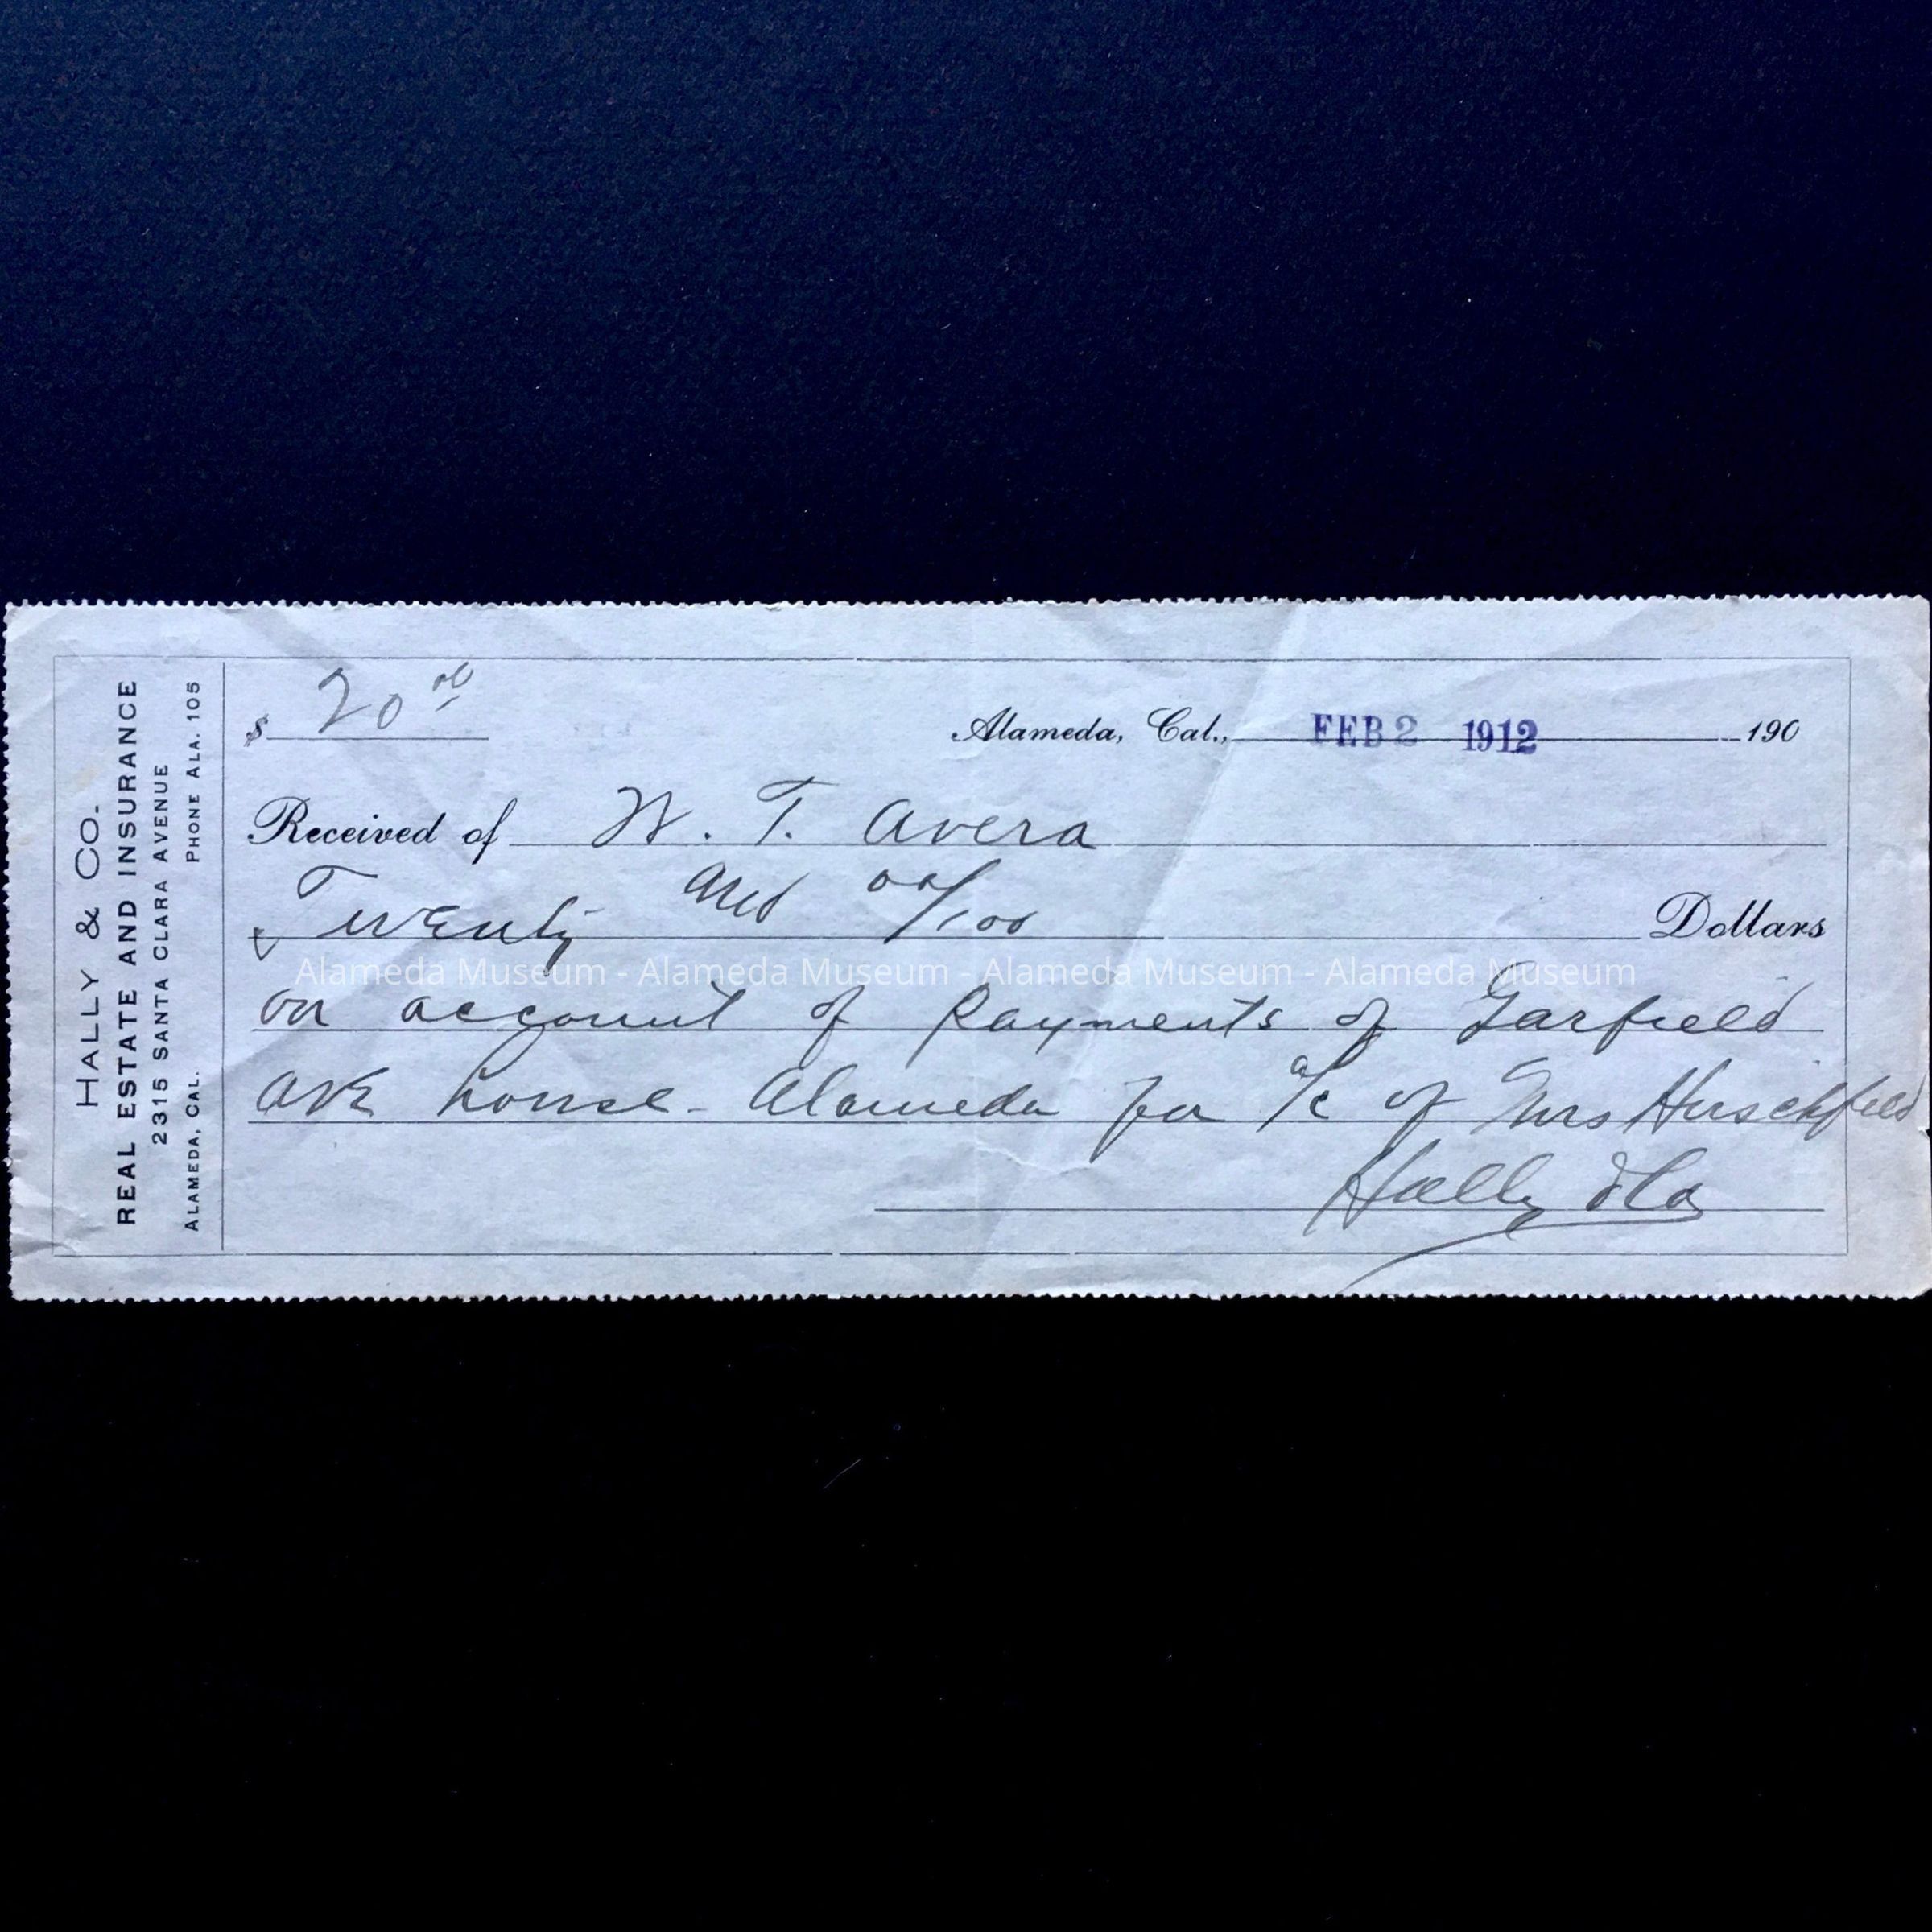 HALLY & CO.
REAL ESTATE AND INSURANCE
2315 SANTA CLARA AVENUE
ALAMEDA, CAL. PHONE ALA. 105
$ 20 00
Alameda, Cal., FEB 2 1912 190
Received of W. T. Avera
Twenty and 00/100 Dollars
Alameda Museum - Alameda Museum - Alameda Museum - Alameda Museum
on account of Payments of Garfield
Ave house - Alameda for a/c of Mrs Hirschfeld
Hally & Co